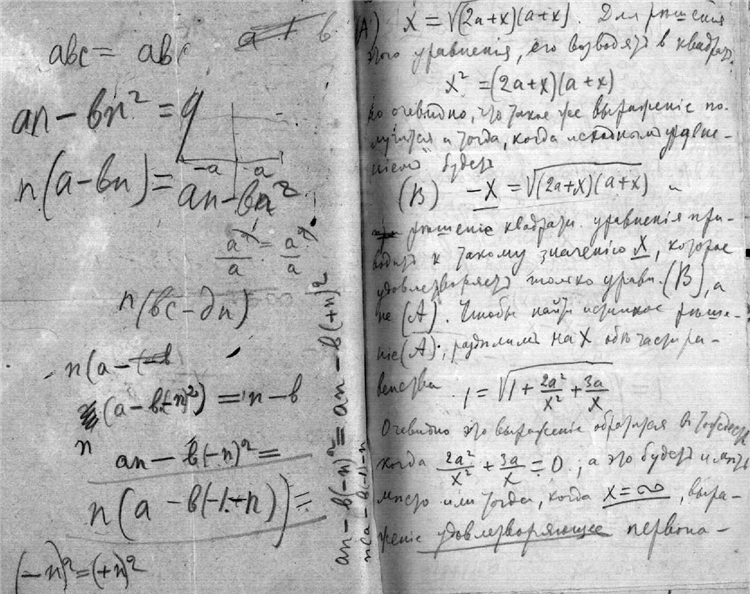 abc = abc
a + b
an - bn² = q
-a
a
n(a-bn) = an - bn²
a²/a = a²/a
n(bc-dn)
n(a-
(a-b(-n)²) = n-b
n
an - b(-n)² =
n(a-b(-1·+n)) =
(-n)² = (+n)²
an - b(-n)² = an - b(+n)²
(A) x = √(2a+x)(a+x). Для рѣшенія
этого уравненія, его возводятъ в квадратъ
x² = (2a+x)(a+x)
но очевидно, что такое же выраженіе по-
лучится и тогда, когда исходнымъ уравне-
ніемъ будетъ
(B) -x = √(2a+x)(a+x) и
рѣшеніе квадратн. уравненія при-
водитъ к такому значенію x, которое
удовлетворяетъ только уравн. (B), а
не (A). Чтобы найти истинное рѣше-
ніе (A), раздѣлимъ на x обѣ части ра-
венства
1 = √1 + 2a²/x² + 3a/x
Очевидно это выраженіе обратится в тождество
когда 2a²/x² + 3a/x = 0; а это будетъ имѣть
мѣсто или тогда, когда x = ∞, выра-
женіе удовлетворяющее первона-